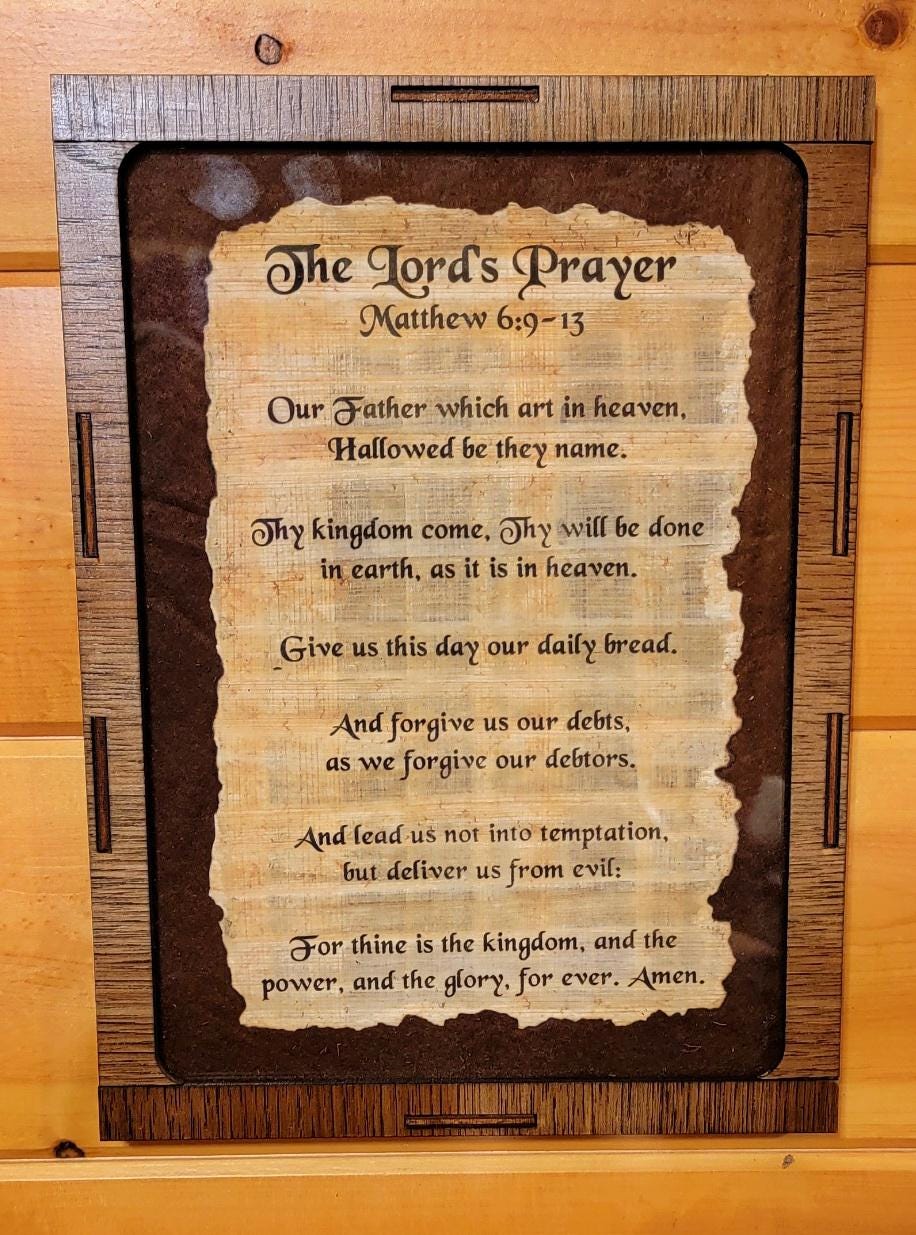 The Lord's Prayer
Matthew 6:9-13
Our Father which art in heaven,
Hallowed be they name.
Thy kingdom come, Thy will be done
in earth, as it is in heaven.
Give us this day our daily bread.
And forgive us our debts,
as we forgive our debtors.
And lead us not into temptation,
but deliver us from evil:
For thine is the kingdom, and the
power, and the glory, for ever. Amen.